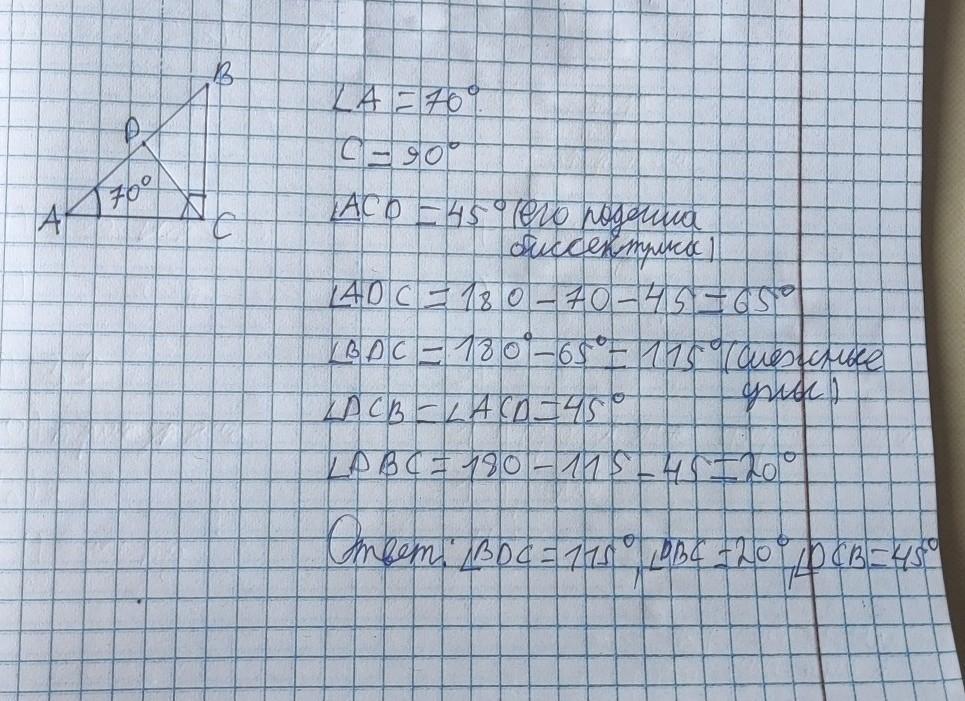 B
D
70°
A
C
∠A = 70°.
C = 90°
∠ACD = 45° (его поделила
биссектриса)
∠ADC = 180 - 70 - 45 = 65°
∠BDC = 180° - 65° = 115° (смежные
углы)
∠DCB = ∠ACD = 45°
∠DBC = 180 - 115 - 45 = 20°
Ответ: ∠BDC = 115°, ∠DBC = 20°, ∠DCB = 45°